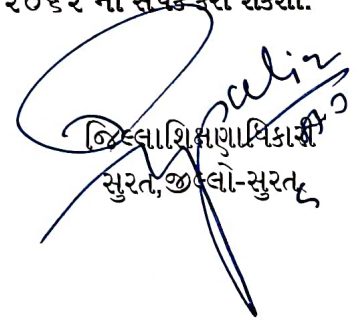 ૨૦૬૨ નો સંપર્ક કરી શકશો.
જિલ્લાશિક્ષણાધિકારી
સુરત,જીલ્લો-સુરત